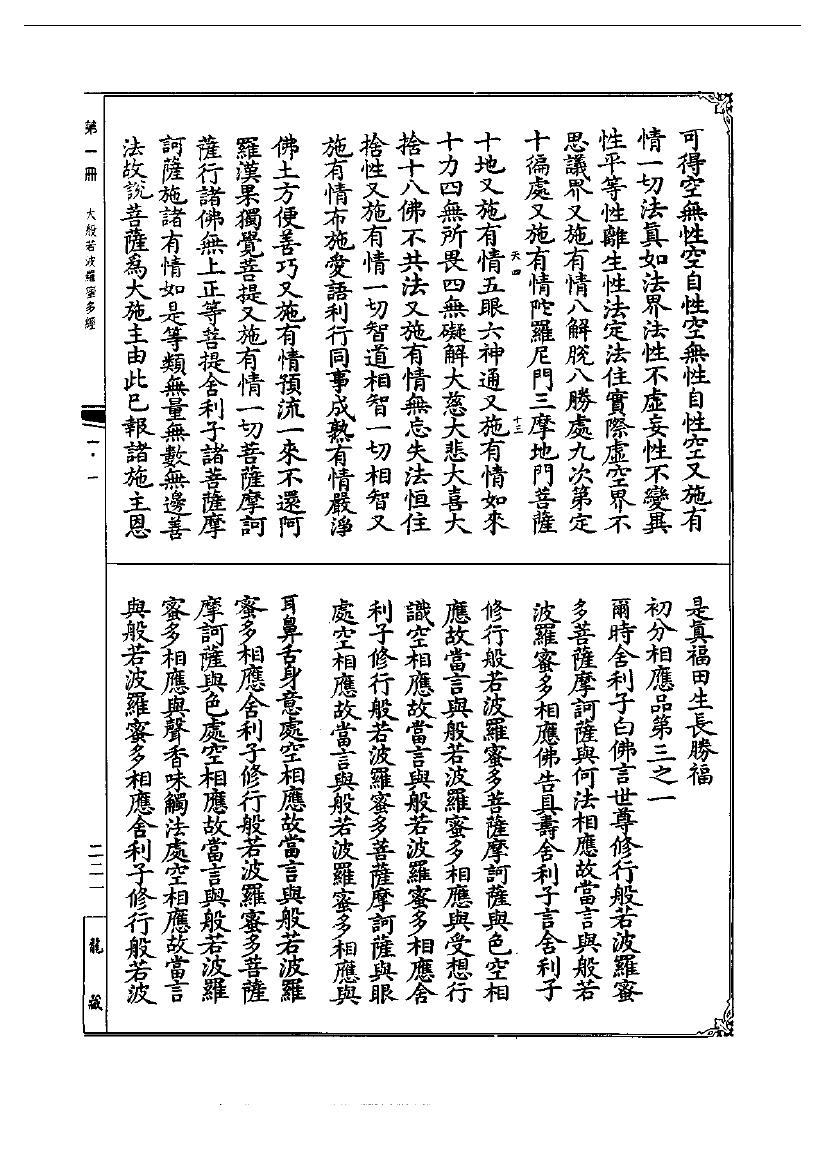 可得空無性空自性空無性自性空又施有
情一切法真如法界法性不虛妄性不變異
性平等性離生性法定法住實際虛空界不
思議界又施有情八解脫八勝處九次第定
十徧處又施有情陀羅尼門三摩地門菩薩
天四
十三
十地又施有情五眼六神通又施有情如來
十力四無所畏四無礙解大慈大悲大喜大
捨十八佛不共法又施有情無忘失法恒住
捨性又施有情一切智道相智一切相智又
施有情布施愛語利行同事成熟有情嚴淨
佛土方便善巧又施有情預流一來不還阿
羅漢果獨覺菩提又施有情一切菩薩摩訶
薩行諸佛無上正等菩提舍利子諸菩薩摩
訶薩施諸有情如是等類無量無數無邊善
法故說菩薩為大施主由此已報諸施主恩
是真福田生長勝福
初分相應品第三之一
爾時舍利子白佛言世尊修行般若波羅蜜
多菩薩摩訶薩與何法相應故當言與般若
波羅蜜多相應佛告具壽舍利子言舍利子
修行般若波羅蜜多菩薩摩訶薩與色空相
應故當言與般若波羅蜜多相應與受想行
識空相應故當言與般若波羅蜜多相應舍
利子修行般若波羅蜜多菩薩摩訶薩與眼
處空相應故當言與般若波羅蜜多相應與
耳鼻舌身意處空相應故當言與般若波羅
蜜多相應舍利子修行般若波羅蜜多菩薩
摩訶薩與色處空相應故當言與般若波羅
蜜多相應與聲香味觸法處空相應故當言
與般若波羅蜜多相應舍利子修行般若波
第一冊 大般若波羅蜜多經
一·一
二二一
龍藏